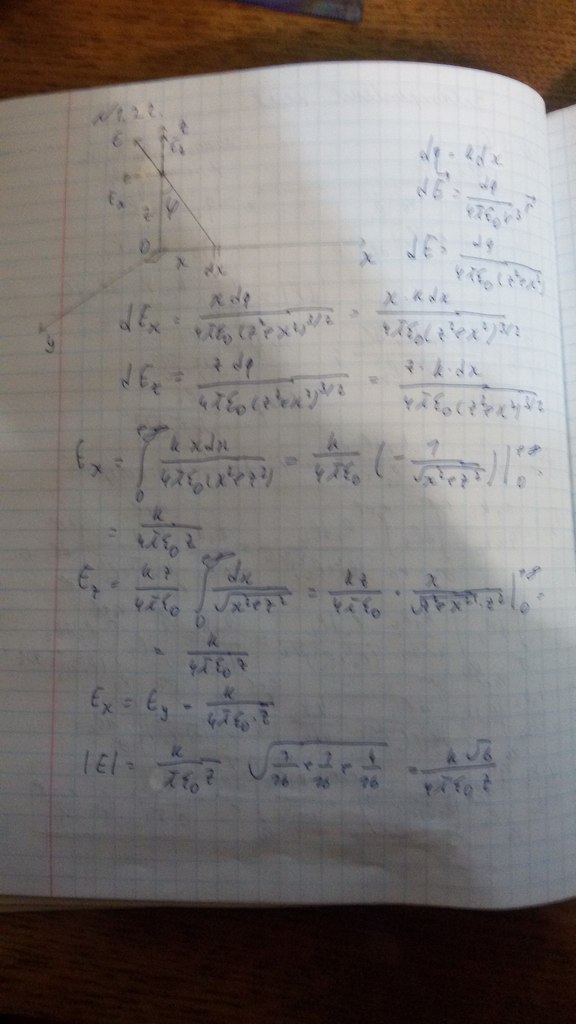 N 1.22.
E
z
E_z
E_x
z φ
0 x dx x
y
dq = k dx
dE⃗ = dq / (4πε₀ r³) r⃗
dE = dq / (4πε₀(z²+x²))
dE_x = x dq / (4πε₀(z²+x²)^{3/2}) = x · k dx / (4πε₀(z²+x²)^{3/2})
dE_z = z dq / (4πε₀(z²+x²)^{3/2}) = z · k · dx / (4πε₀(z²+x²)^{3/2})
E_x = ∫₀^{+∞} k x dx / (4πε₀(x²+z²)) = k / (4πε₀) (− 1 / √(x²+z²)) |₀^{+∞} =
= k / (4πε₀ z)
E_z = kz / (4πε₀) ∫₀^{+∞} dx / √(x²+z²) = kz / (4πε₀) · x / (√(z²+x²) · z²) |₀^{+∞} =
= k / (4πε₀ z)
E_x = E_y = k / (4πε₀ · z)
|E| = k / (πε₀ z) √(1/16 + 1/16 + 4/16) = k√6 / (4πε₀ z)